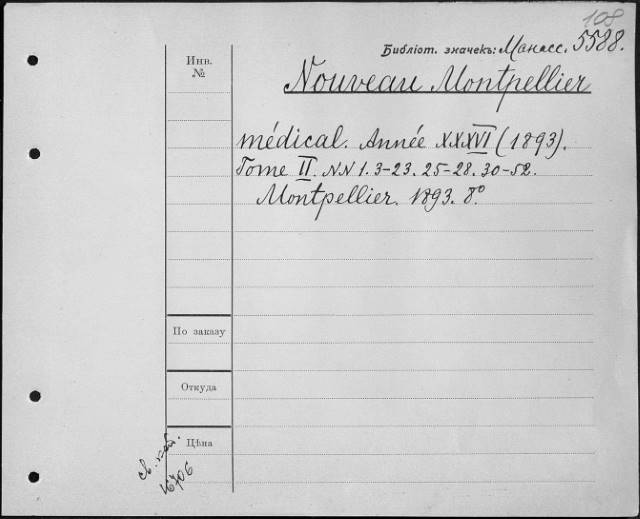 108
Библіот. значекъ: Манасс. 5588.
Инв.
№
Nouveau Montpellier
médical. Année XXXVI (1893).
Tome II. NN 1. 3-23. 25-28. 30-52.
Montpellier. 1893. 8°
По заказу
Откуда
Цѣна
св. каб.
16706